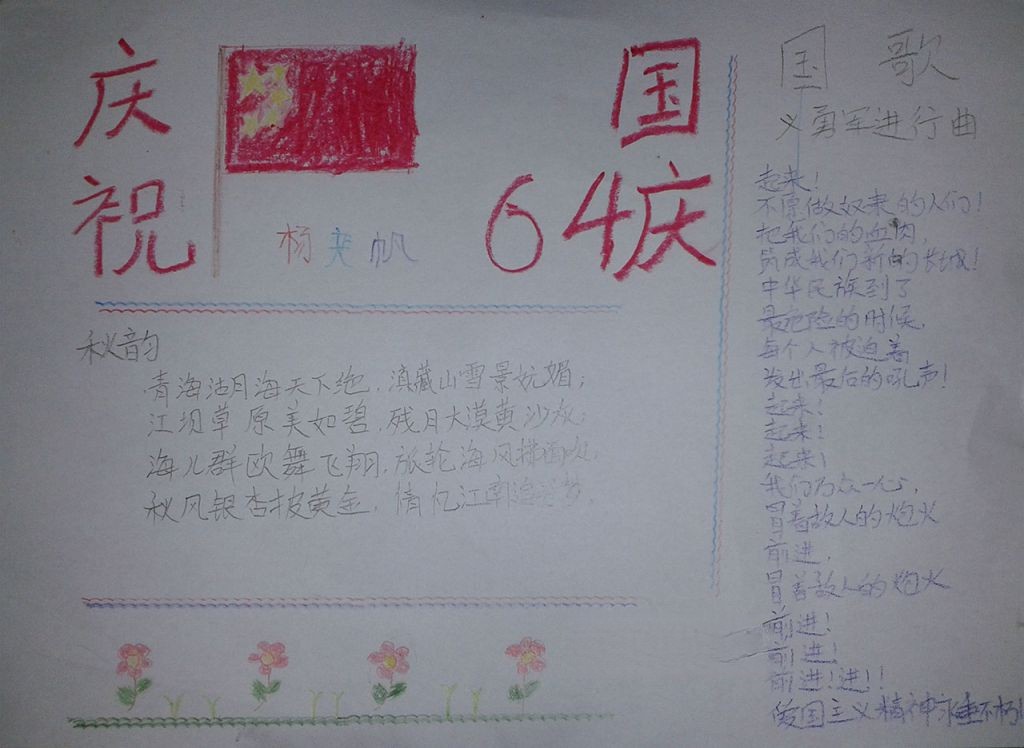 庆祝
国庆
64
杨奕帆
秋韵
青海沽月海天下绝，滇藏山雪景妩媚；
江坝草原美如碧，残月大漠黄沙灰；
海儿群欧舞飞翔，旅轮海风拂面吹，
秋风银杏披黄金，情忆江南追
国歌
义勇军进行曲
起来！
不愿做奴隶的人们！
把我们的血肉，
筑成我们新的长城！
中华民族到了
最危险的时候，
每个人被迫着
发出最后的吼声！
起来！
起来！
起来！
我们万众一心，
冒着敌人的炮火
前进，
冒着敌人的炮火
前进！
前进！
前进！进！！
爱国主义精神永垂不朽！